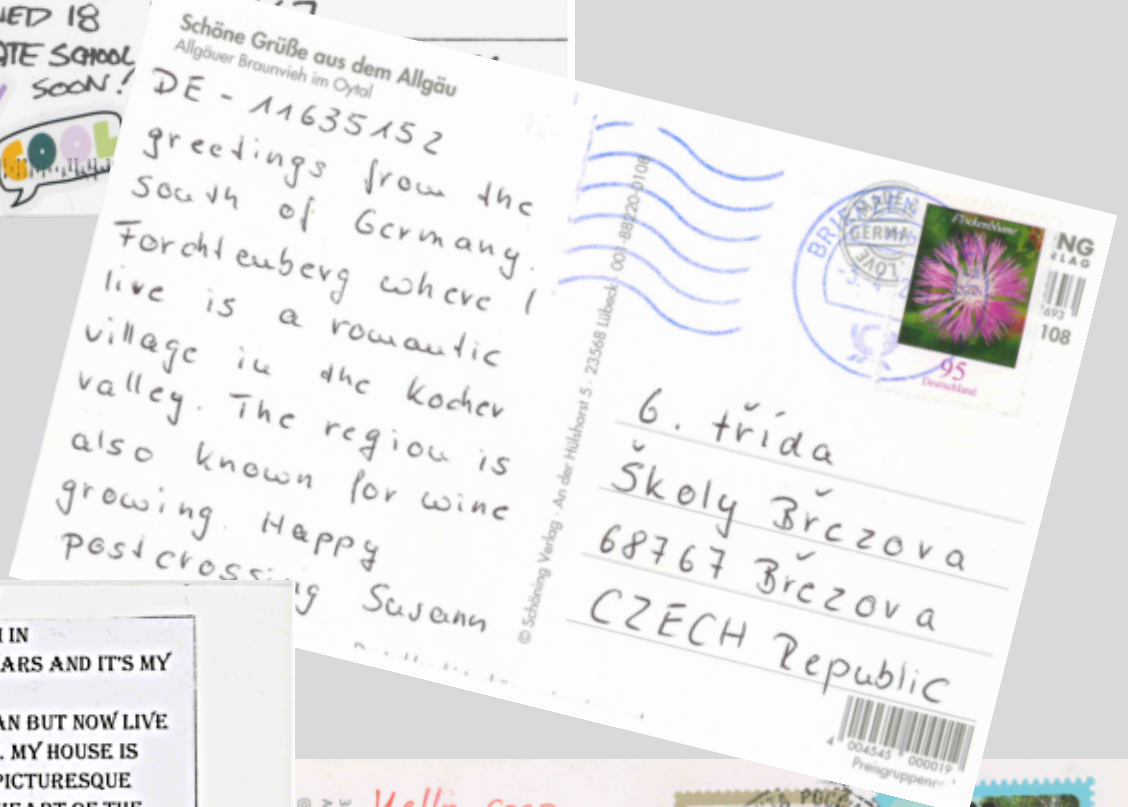 NED 18
ATE SCHOOL
SOON!
COOL
Schöne Grüße aus dem Allgäu
Allgäuer Braunvieh im Oytal
DE-11635152
greetings from the
south of Germany.
Forchtenberg where I
live is a romantic
village in the Kocher
valley. The region is
also known for wine
growing. Happy
postcrossing Susann
© Schöning Verlag · An der Hülshorst 5 · 23568 Lübeck
001-88220-0108
BRIE
GERMA
LOVE
Flockenblume
95
Deutschland
NG
LAG
693
108
6. třída
Školy Břczova
68767 Březova
CZECH Republic
4 004545 000019
Preisgruppen
I IN
ARS AND IT'S MY
AN BUT NOW LIVE
. MY HOUSE IS
PICTURESQUE
Hello